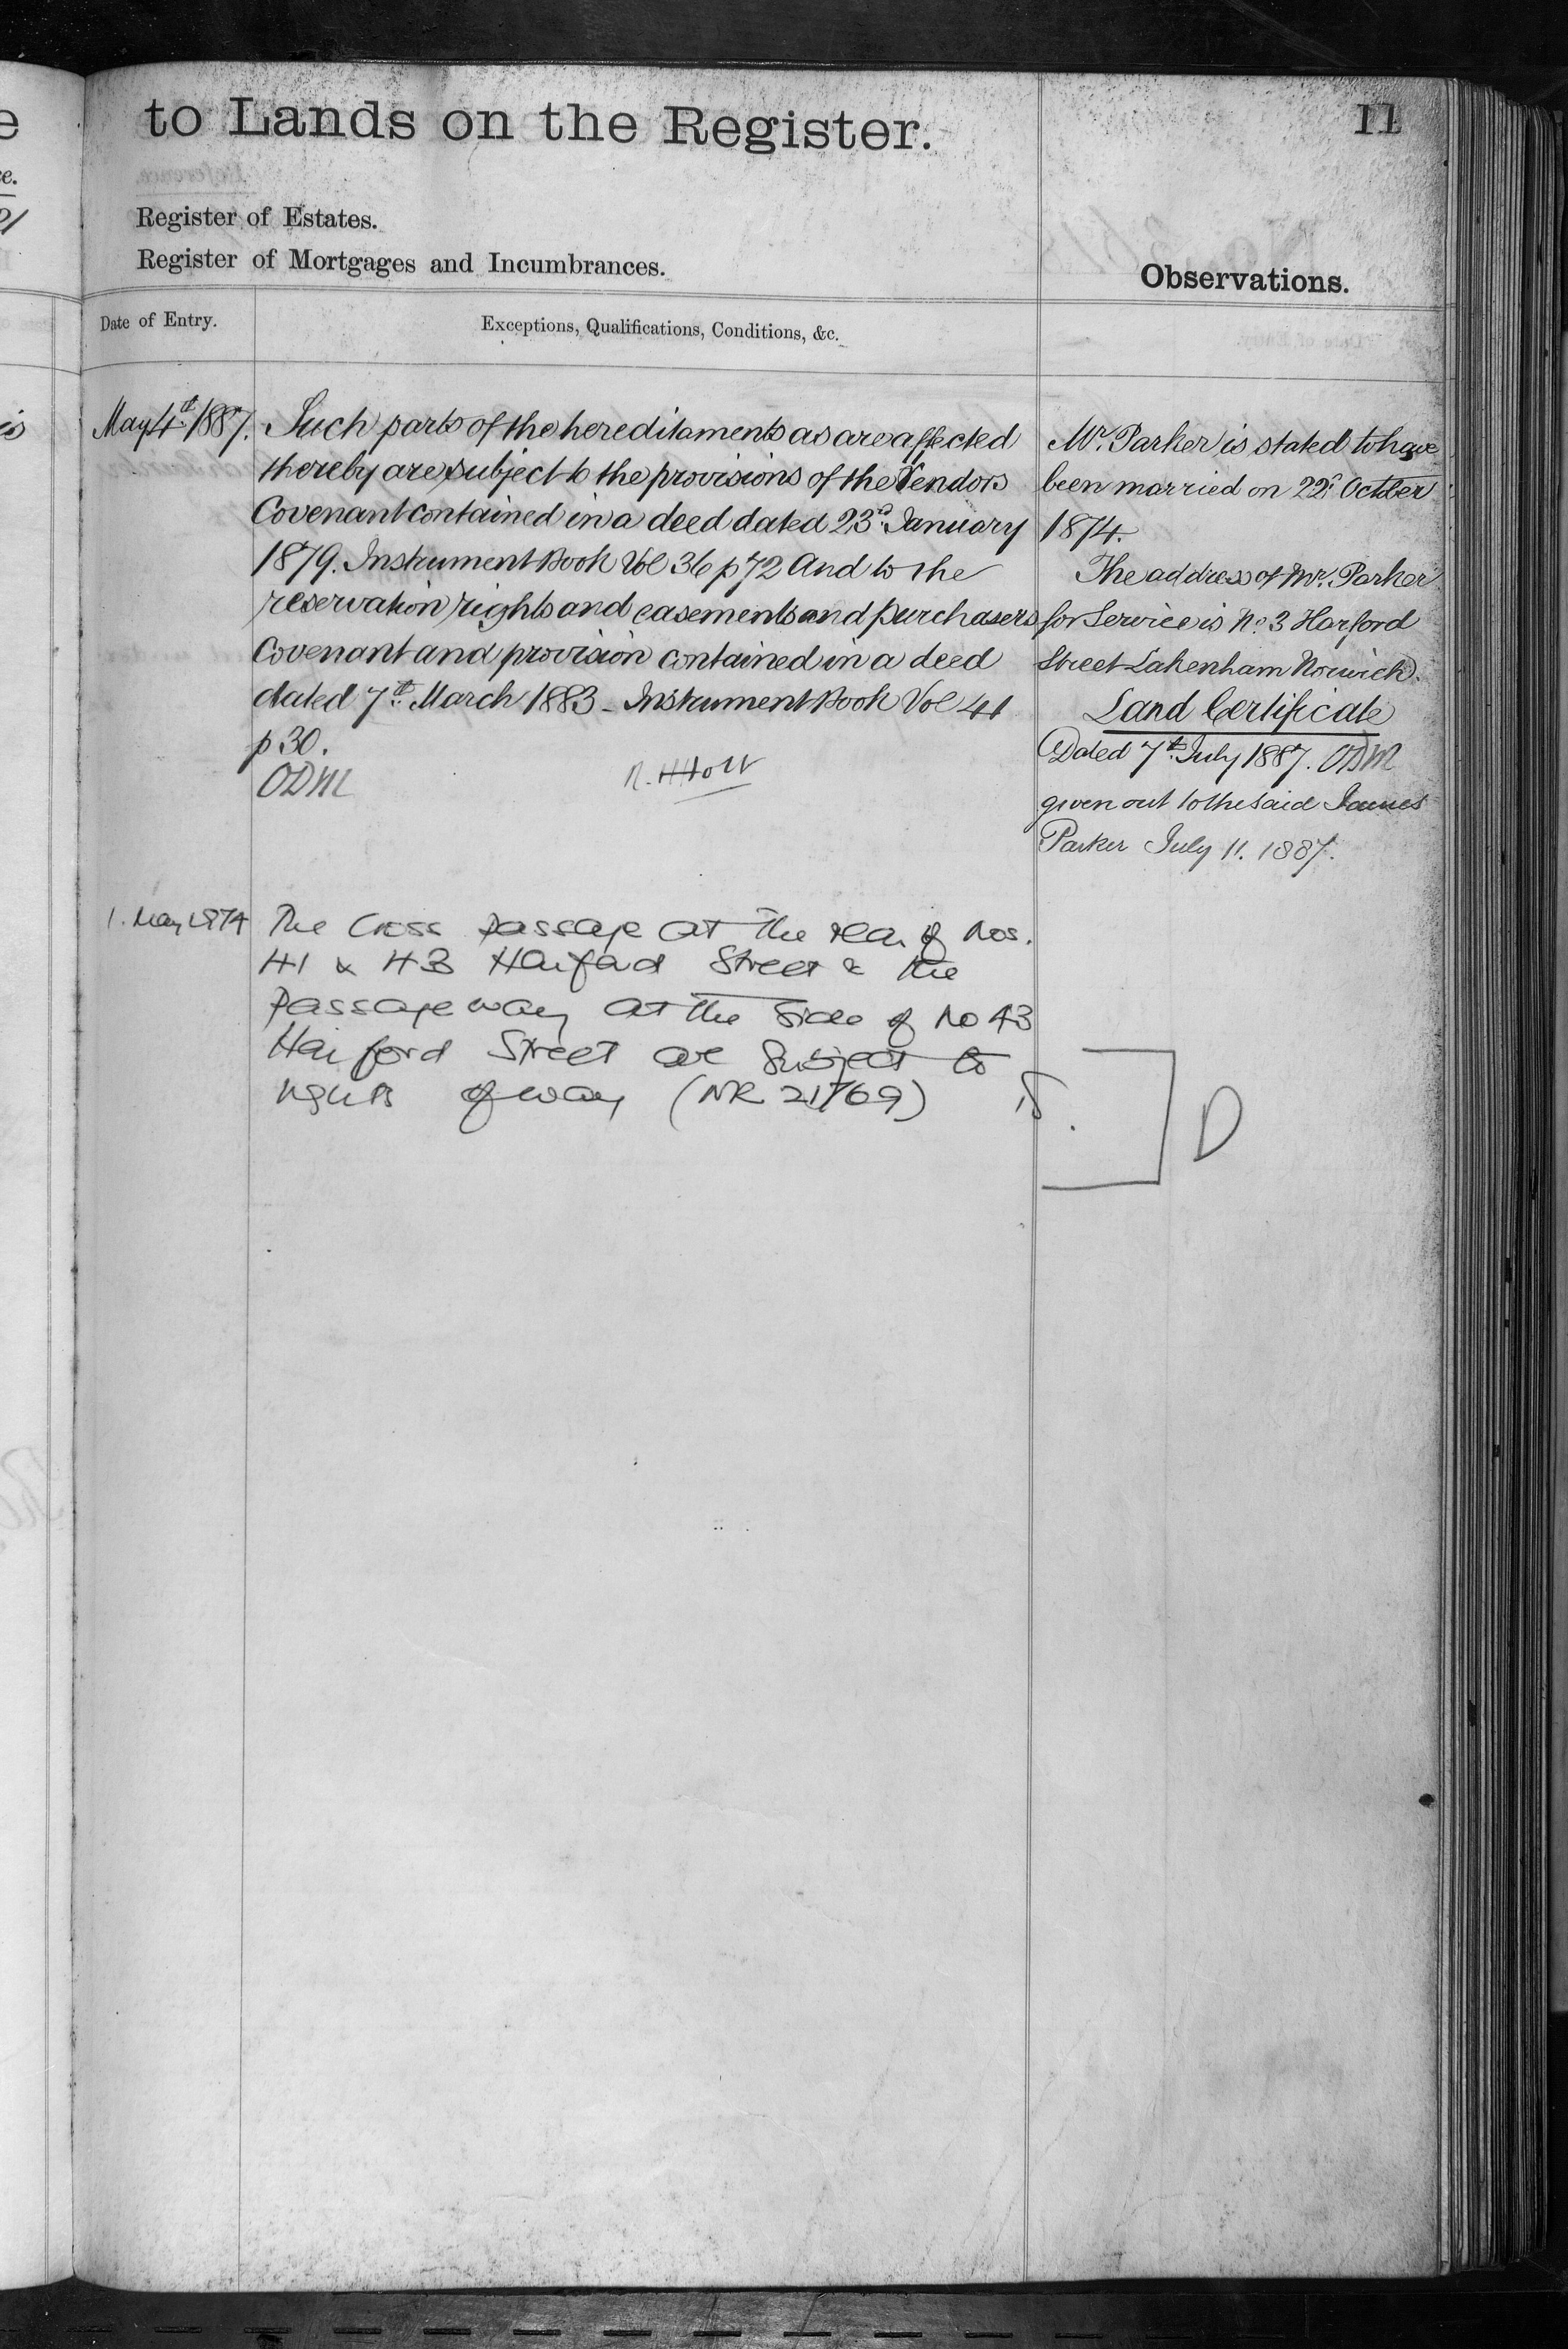 to Lands on the Register.
11
Register of Estates.
Register of Mortgages and Incumbrances.
Observations.
Date of Entry.
Exceptions, Qualifications, Conditions, &c.
May 4th 1887.
Such parts of the hereditaments as are affected
thereby are subject to the provisions of the Vendors
Covenant contained in a deed dated 23d January
1879. Instrument Book Vol 36 p 72 And to the
reservation rights and easements and purchasers
Covenant and provision contained in a deed
dated 7th March 1883 - Instrument Book Vol 41
p 30.
ODM
Mr. Parker is stated to have
been married on 22d October
1874.
The address of Mr. Parker
for Service is No. 3 Harford
Street Lakenham Norwich.
Land Certificate
Dated 7th July 1887. ODM
given out to the said James
Parker July 11. 1887.
1. May 1974
The Cross passage at the rear of Nos.
41 & 43 Harford Street & the
passage way at the side of No 43
Harford Street are subject to
rights of way (NR 21769)
D